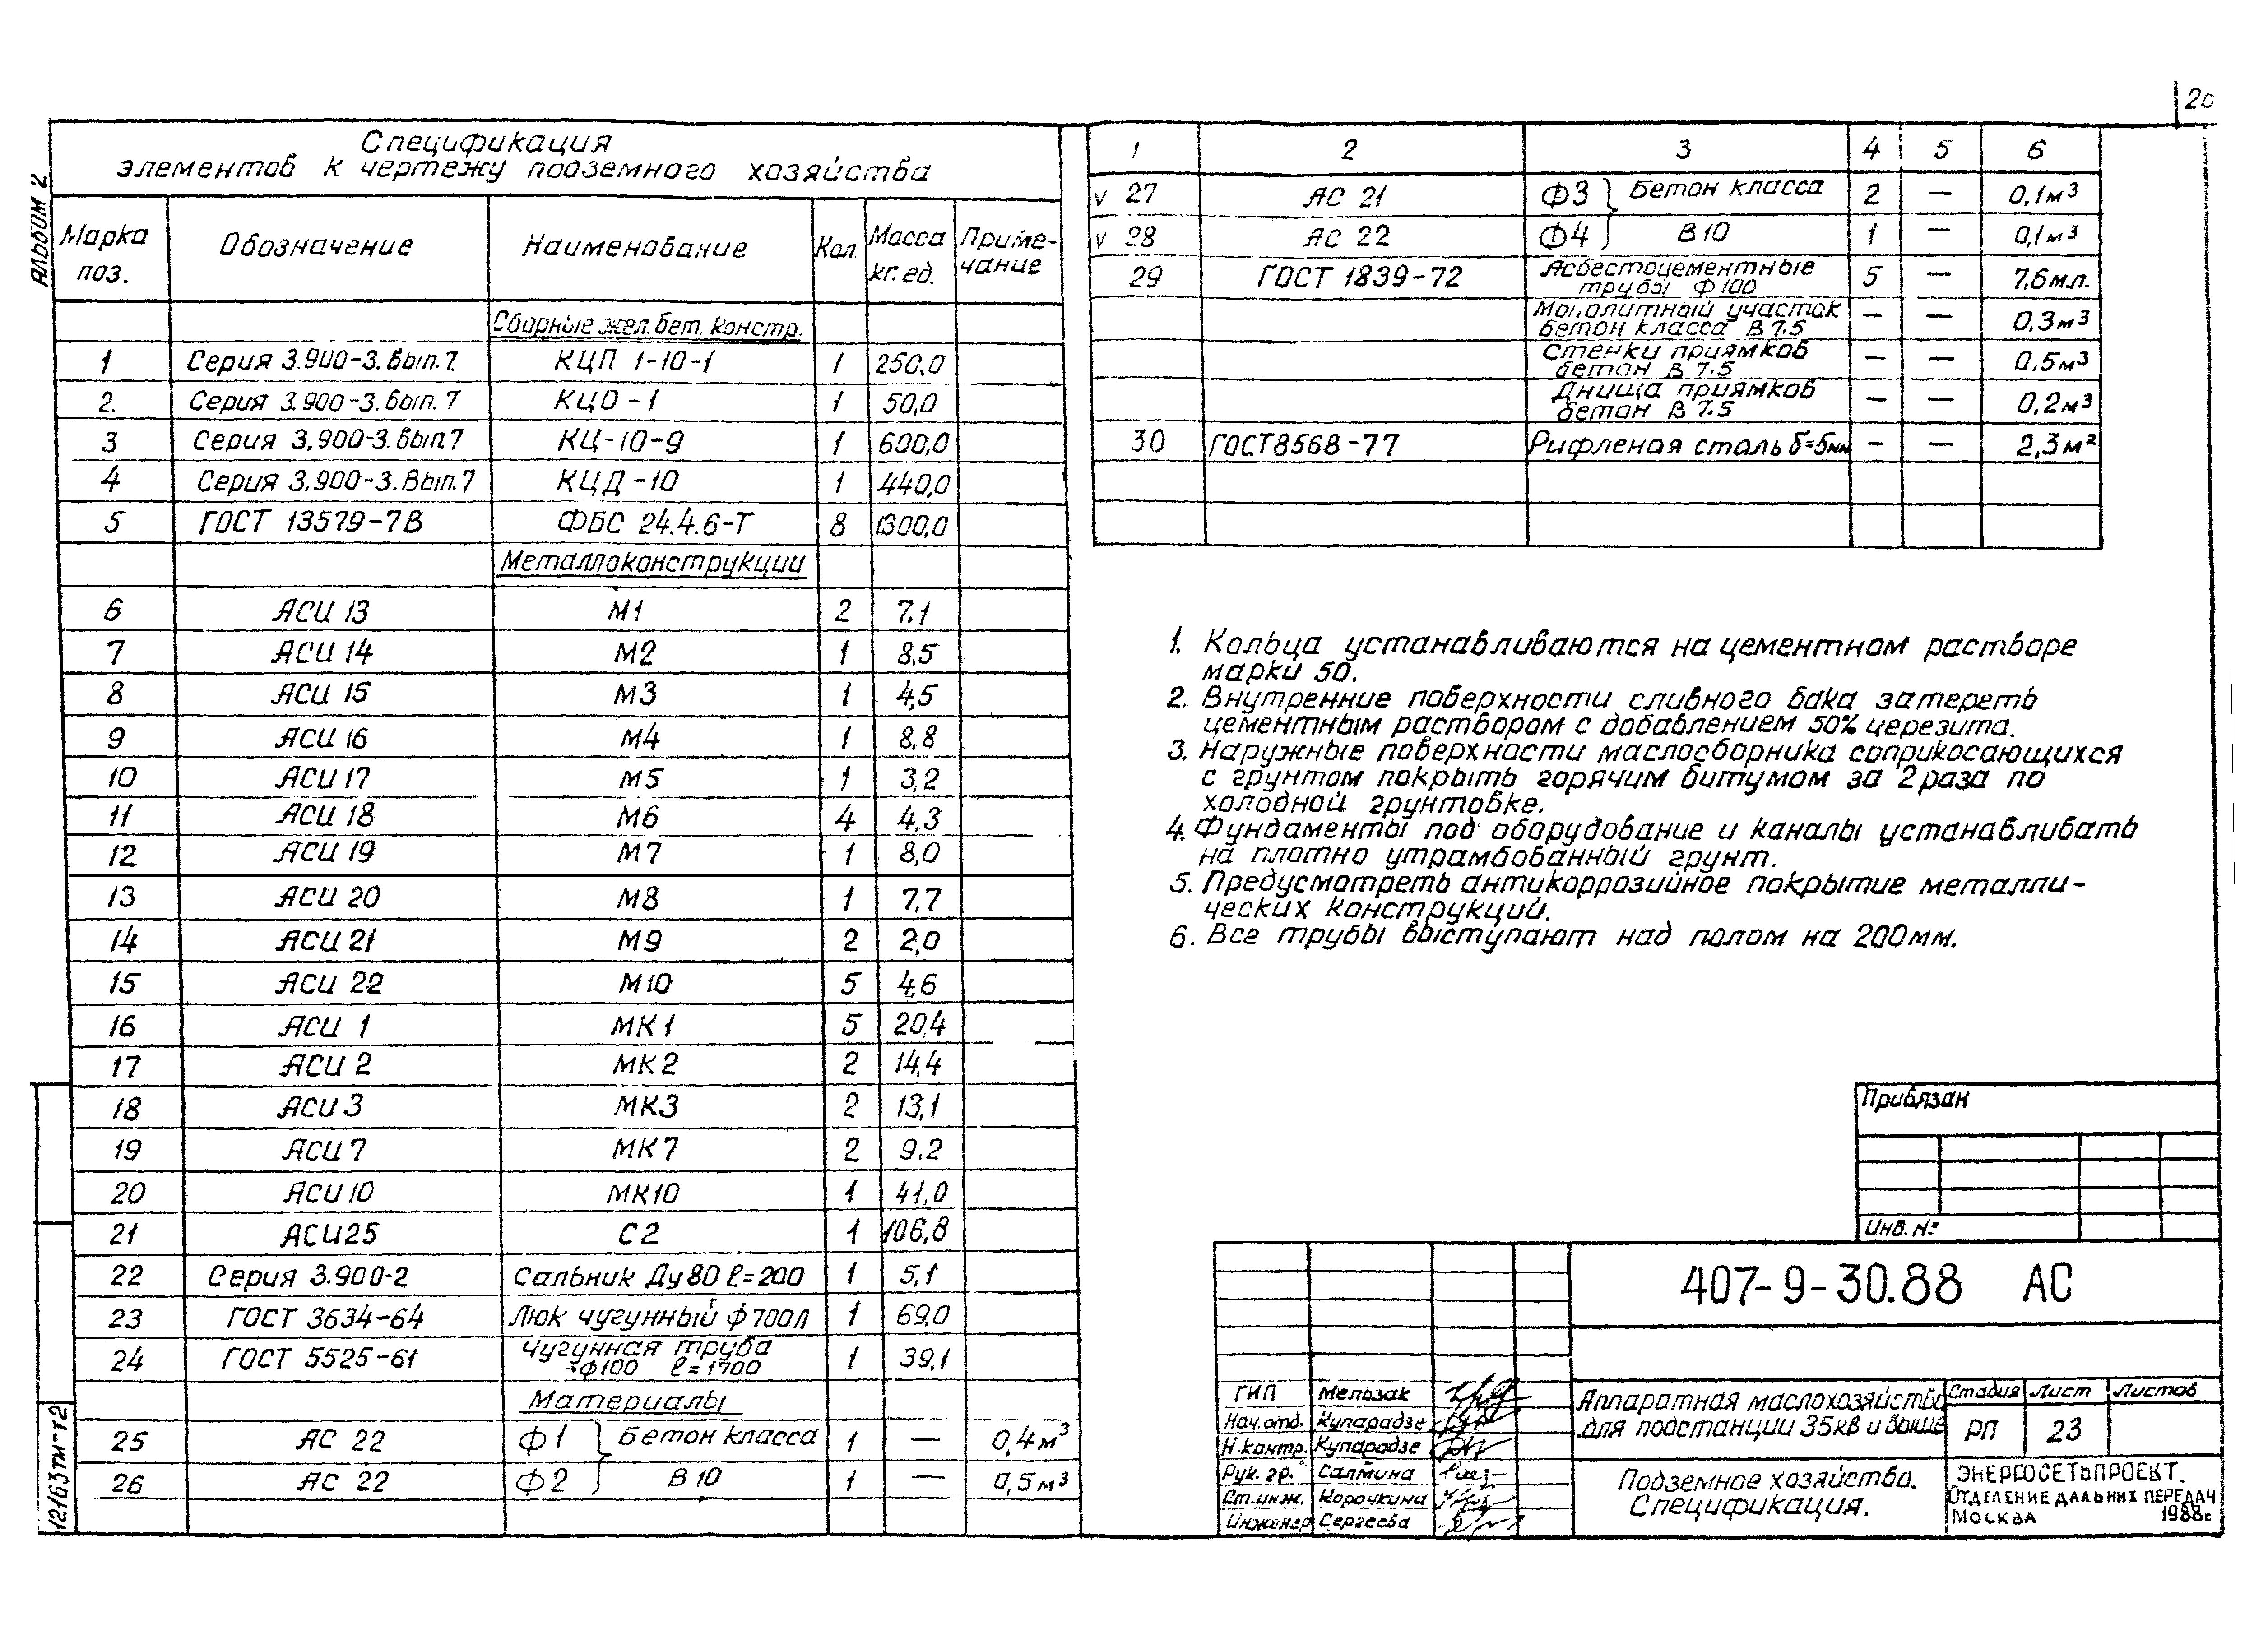 20
Альбом 2
Спецификация
элементов к чертежу подземного хозяйства
Марка поз. Обозначение Наименование Кол. Масса кг. ед. Приме-чание
Сборные жел. бет. констр.
1 Серия 3.900-3. вып. 7. КЦП 1-10-1 1 250,0
2. Серия 3.900-3. вып. 7 КЦО-1 1 50,0
3 Серия 3.900-3. вып. 7 КЦ-10-9 1 600,0
4 Серия 3.900-3. Вып. 7 КЦД-10 1 440,0
5 ГОСТ 13579-78 ФБС 24.4.6-Т 8 1300,0
Металлоконструкции
6 АСИ 13 М1 2 7.1
7 АСИ 14 М2 1 8,5
8 АСИ 15 М3 1 4,5
9 АСИ 16 М4 1 8,8
10 АСИ 17 М5 1 3,2
11 АСИ 18 М6 4 4,3
12 АСИ 19 М7 1 8,0
13 АСИ 20 М8 1 7,7
14 АСИ 21 М9 2 2,0
15 АСИ 22 М10 5 4,6
16 АСИ 1 МК1 5 20,4
17 АСИ 2 МК2 2 14,4
18 АСИ 3 МК3 2 13,1
19 АСИ 7 МК7 2 9.2
20 АСИ 10 МК10 1 41,0
21 АСИ25 С2 1 106,8
22 Серия 3.900-2 Сальник Ду80 ℓ=200 1 5,1
23 ГОСТ 3634-64 Люк чугунный ф700Л 1 69,0
24 ГОСТ 5525-61 Чугунная труба ф100 ℓ=1700 1 39,1
Материалы
25 АС 22 Ф1 } Бетон класса 1 — 0,4м³
26 АС 22 Ф2 } В10 1 — 0,5м³
12163тм-т2
1 2 3 4 5 6
v 27 АС 21 Ф3 } Бетон класса 2 — 0,1м³
v 28 АС 22 Ф4 } В10 1 — 0,1м³
29 ГОСТ 1839-72 Асбестоцементные трубы Ф100 5 — 7,6м.п.
Монолитный участок бетон класса В 7.5 — — 0,3м³
Стенки приямков бетон В 7.5 — — 0,5м³
Днища приямков бетон В 7.5 — — 0,2м³
30 ГОСТ8568-77 Рифленая сталь δ=5мм — — 2,3м²
1. Кольца устанавливаются на цементном растворе
марки 50.
2. Внутренние поверхности сливного бака затереть
цементным раствором с добавлением 50% церезита.
3. Наружные поверхности маслосборника соприкосающихся
с грунтом покрыть горячим битумом за 2 раза по
холодной грунтовке.
4. Фундаменты под оборудование и каналы устанавливать
на плотно утрамбованный грунт.
5. Предусмотреть антикоррозийное покрытие металли-
ческих конструкций.
6. Все трубы выступают над полом на 200мм.
Привязан
Инв. №
407-9-30.88 АС
ГИП Мельзак
Нач. отд. Купарадзе
Н. контр. Купарадзе
Рук. гр. Салтина
Ст. инж. Корочкина
Инженер Сергеева
Аппаратная маслохозяйства
для подстанции 35кв и выше
Стадия Лист Листов
РП 23
Подземное хозяйство.
Спецификация.
ЭНЕРГОСЕТЬПРОЕКТ.
ОТДЕЛЕНИЕ ДАЛЬНИХ ПЕРЕДАЧ
МОСКВА 1988г.